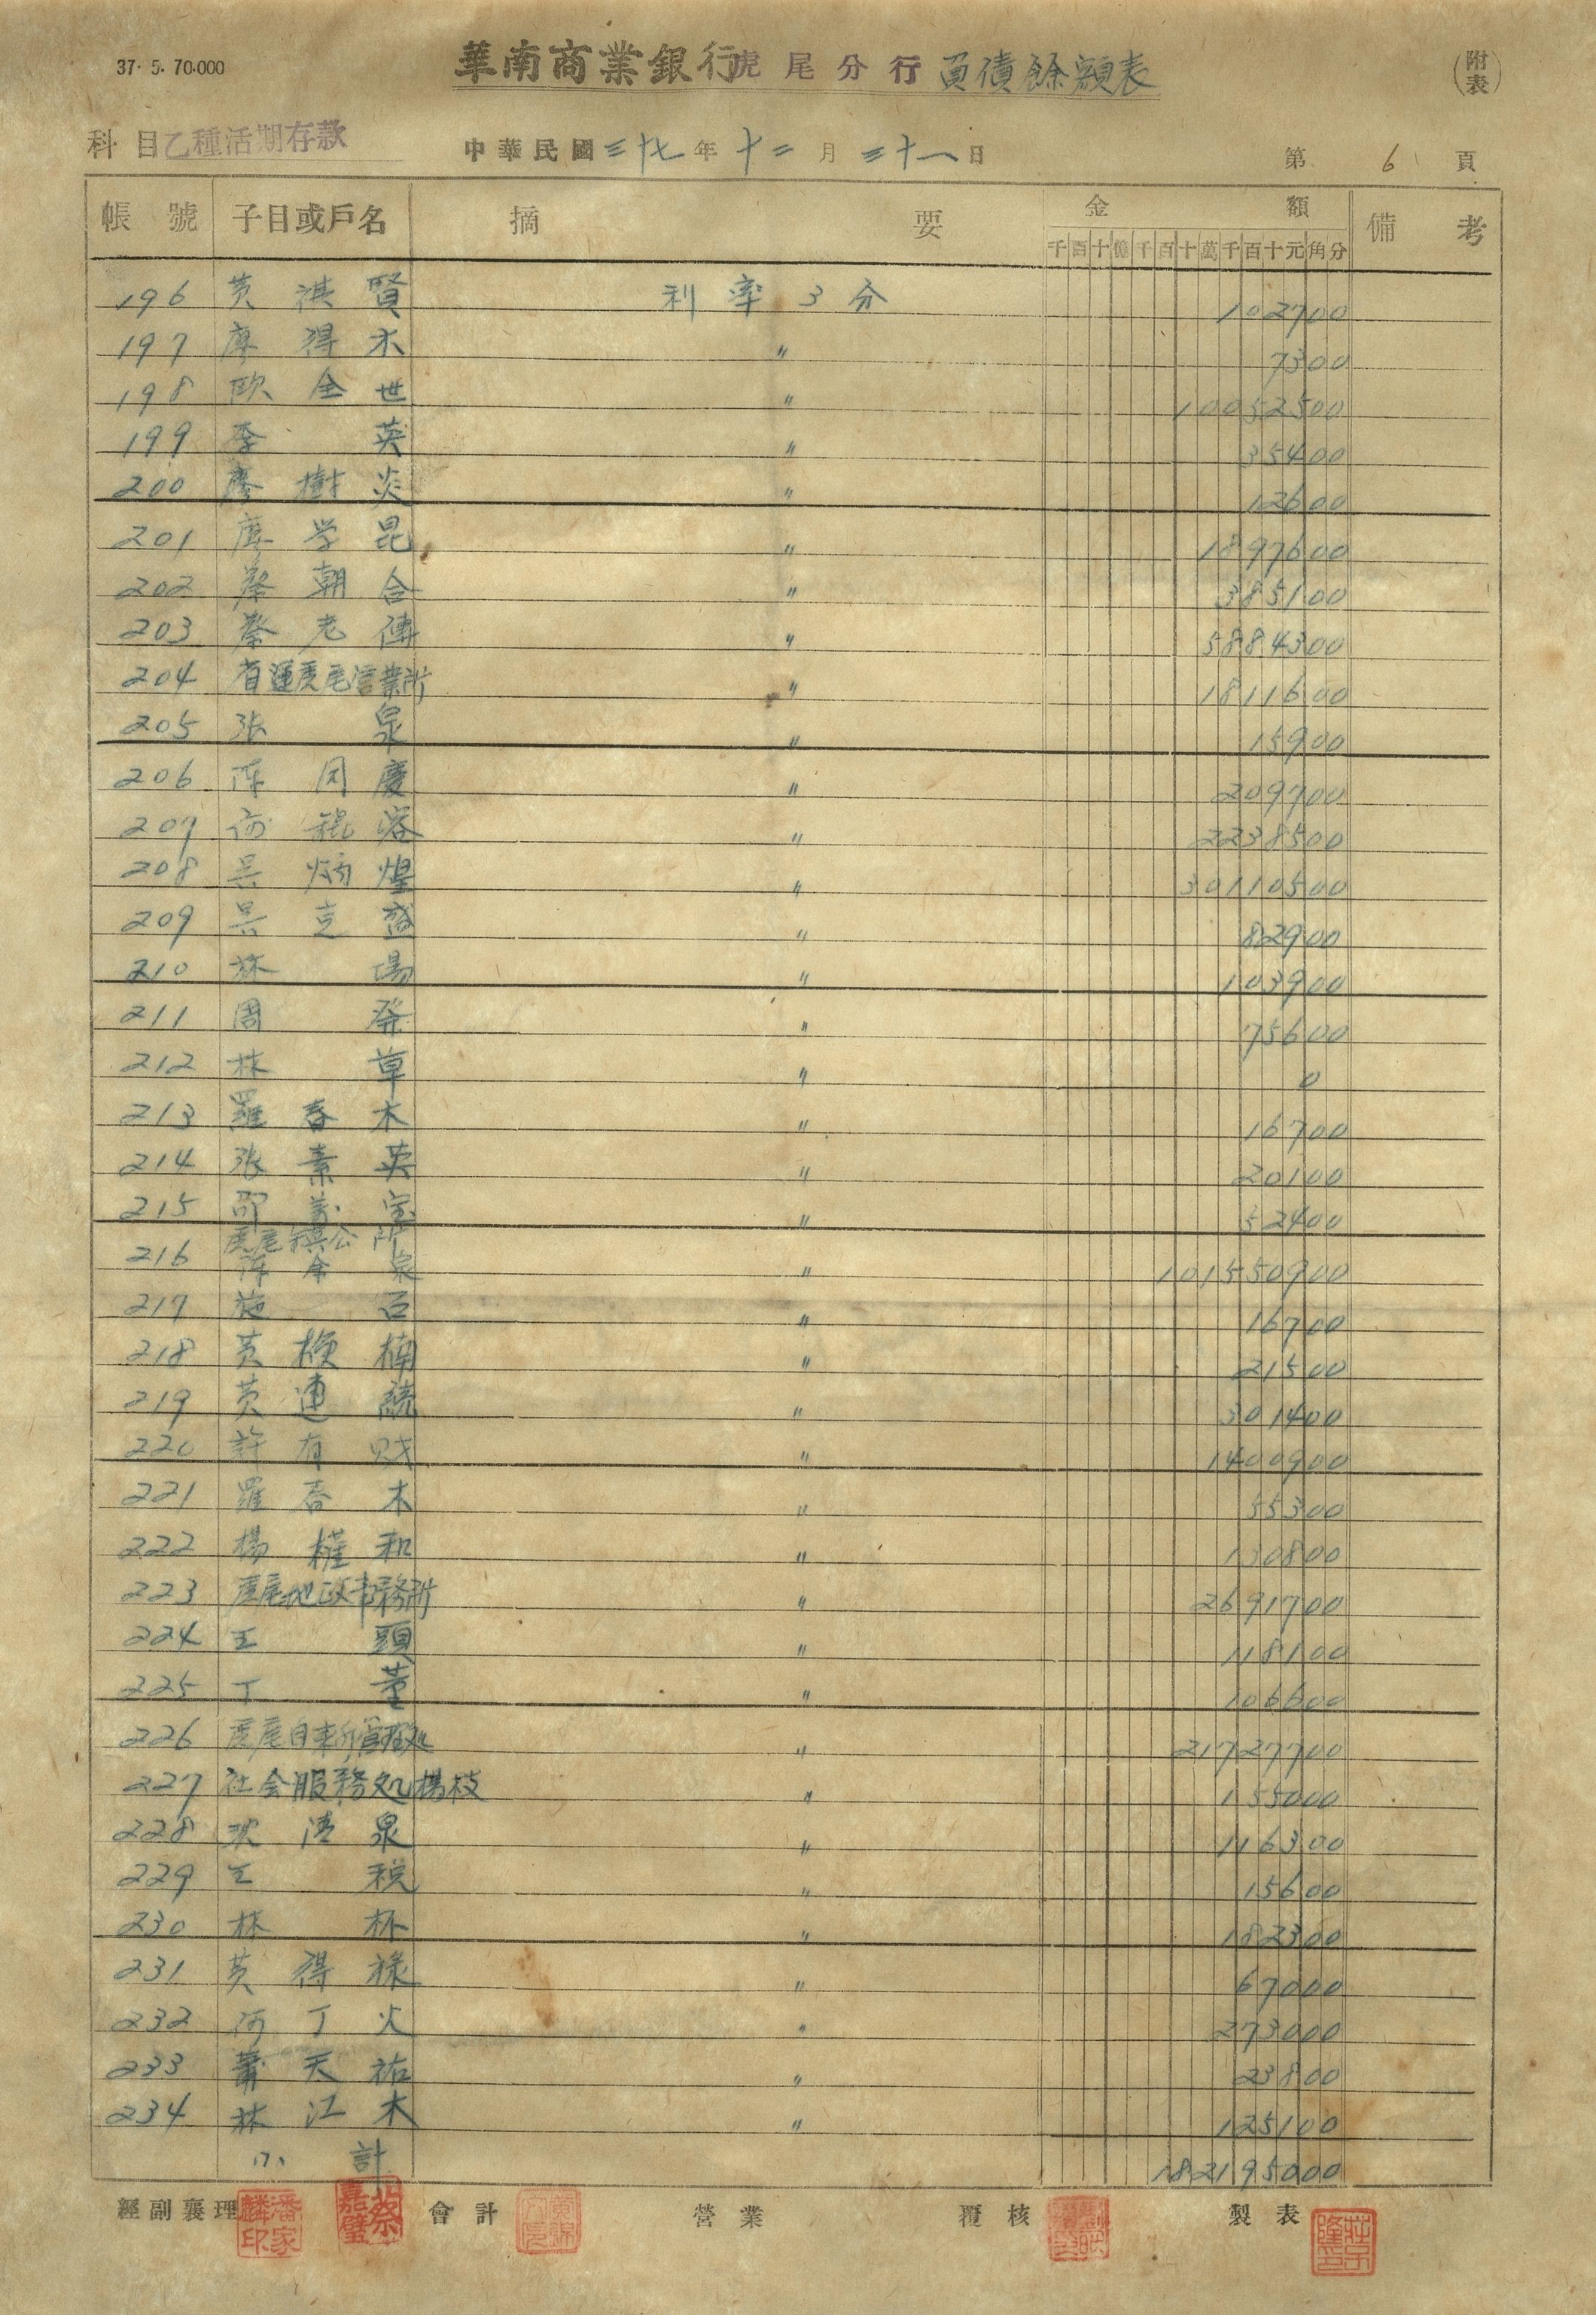 37. 5. 70.000
華南商業銀行虎尾分行負債餘額表
(附表)
科目乙種活期存款 中華民國三十七年十二月三十一日 第6頁
帳號 子目或戶名 摘要 金額 備考
千百十億千百十萬千百十元角分
196 黃淇賢 利率3分 102700
197 廖得木 〃 7300
198 歐全世 〃 10052500
199 李英 〃 35400
200 廖樹炎 〃 12600
201 廖学昆 〃 1897600
202 蔡朝合 〃 385100
203 蔡老傳 〃 5884300
204 省運虎尾營業所 〃 1811600
205 張泉 〃 15900
206 陈同慶 〃 209700
207 〃 2238500
208 吳炳煌 〃 30110500
209 吳克盛 〃 82900
210 林場 〃 103900
211 周發 〃 75600
212 林草 〃 0
213 羅春木 〃 16700
214 張素英 〃 20100
215 邵美宝 〃 52400
216 虎尾鎮公所 陈余泉 〃 101550900
217 施石 〃 16700
218 黃梗楠 〃 21500
219 黃連統 〃 301400
220 許有財 〃 1400900
221 羅春木 〃 55300
222 楊權和 〃 130800
223 虎尾地政事務所 〃 2691700
224 王頭 〃 118100
225 丁董 〃 106600
226 虎尾自来水管理処 〃 21727700
227 社会服務処楊枝 〃 155000
228 沈清泉 〃 116300
229 王税 〃 15600
230 林杯 〃 182300
231 黃得祿 〃 67000
232 何丁火 〃 273000
233 蕭天祐 〃 23800
234 林江木 〃 125100
小計 182195000
經副襄理 潘家麟印 蔡嘉璧 會計 營業 覆核 製表